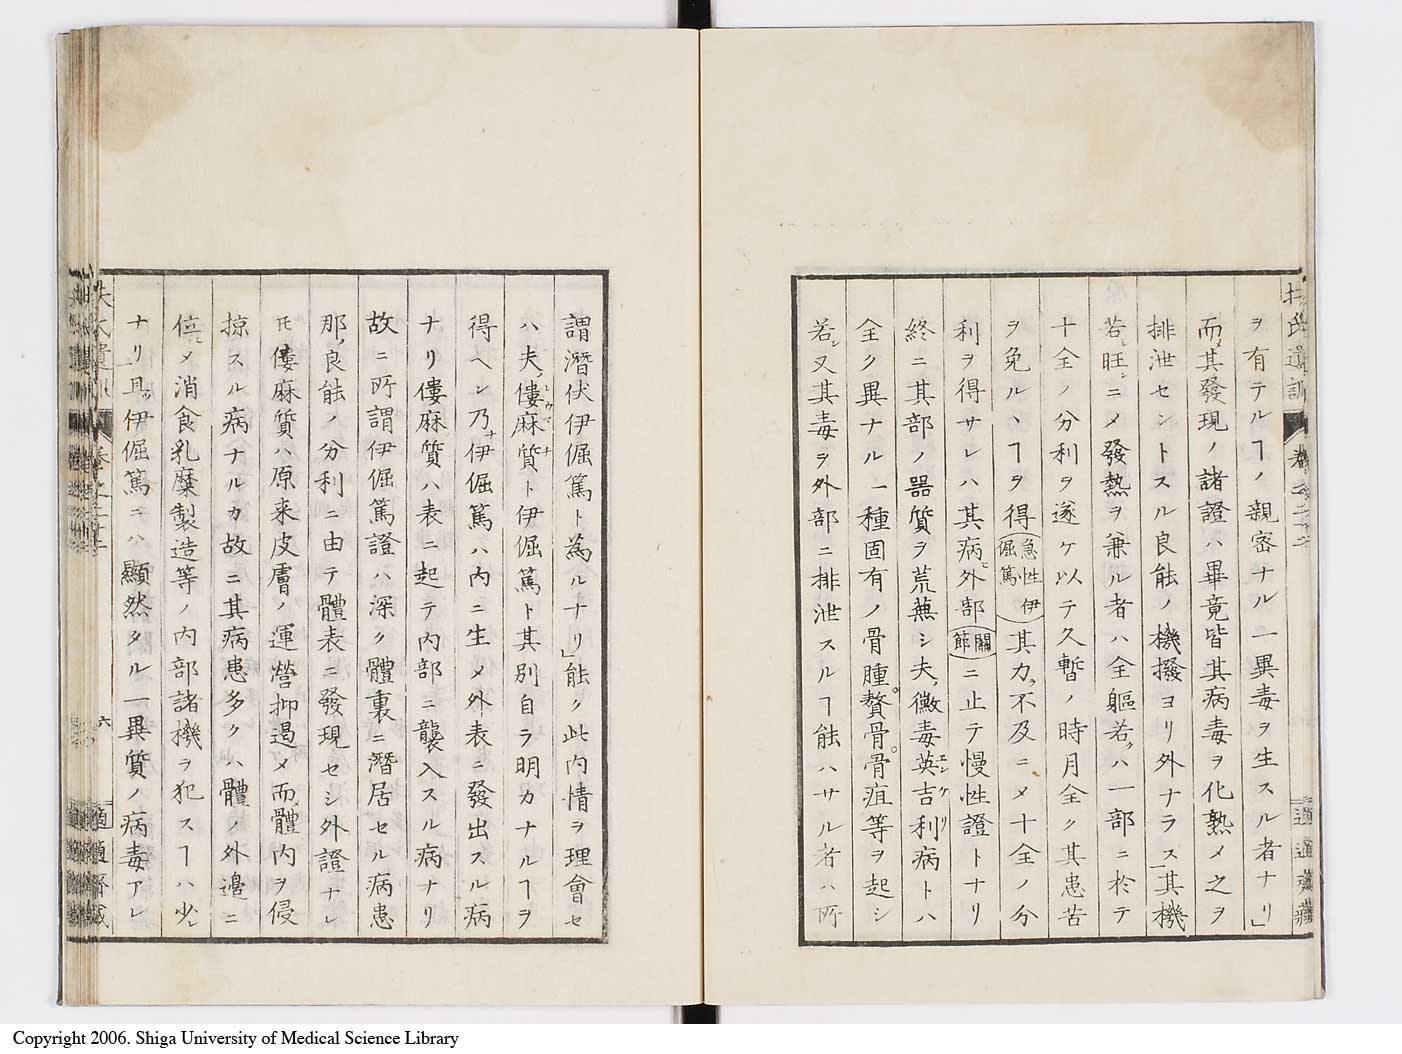 扶氏遺訓
適適齋藏
ヲ有テルヿノ親密ナル一異毒ヲ生スル者ナリ」
而〆其發現ノ諸證ハ畢竟皆其病毒ヲ化熟〆之ヲ
排泄セントスル良能ノ機撥ヨリ外ナラス」其機
若シ旺ニ〆發熱ヲ兼ル者ハ全軀若クハ一部ニ於テ
十全ノ分利ヲ遂ケ以テ久暫ノ時月全ク其患苦
ヲ免ルヽヿヲ得(急性伊倔篤)其力不及ニ〆十全ノ分
利ヲ得サレハ其病外部(關節)ニ止テ慢性證トナリ
終ニ其部ノ器質ヲ荒蕪シ夫ノ黴毒英吉利病トハ
全ク異ナル一種固有ノ骨腫。贅骨。骨疽等ヲ起シ
若シ又其毒ヲ外部ニ排泄スルヿ能ハサル者ハ所
謂潛伏伊倔篤ト爲ルナリ」能ク此内情ヲ理會セ
ハ夫ノ僂麻質ト伊倔篤ト其別自ラ明カナルヿヲ
得ヘシ乃チ伊倔篤ハ内ニ生〆外表ニ發出スル病
ナリ僂麻質ハ表ニ起テ内部ニ襲入スル病ナリ
故ニ所謂伊倔篤證ハ深ク體裏ニ潛居セル病患
那ノ良能ノ分利ニ由テ體表ニ發現セシ外證ナレ
㪽僂麻質ハ原来皮膚ノ運營抑遏〆而體内ヲ侵
掠スル病ナルカ故ニ其病患多クハ體ノ外邊ニ
位〆消食乳糜製造等ノ内部諸機ヲ犯スヿハ少レ
ナリ」且ツ伊倔篤ニハ顯然タル一異質ノ病毒アレ
六
Copyright 2006. Shiga University of Medical Science Library